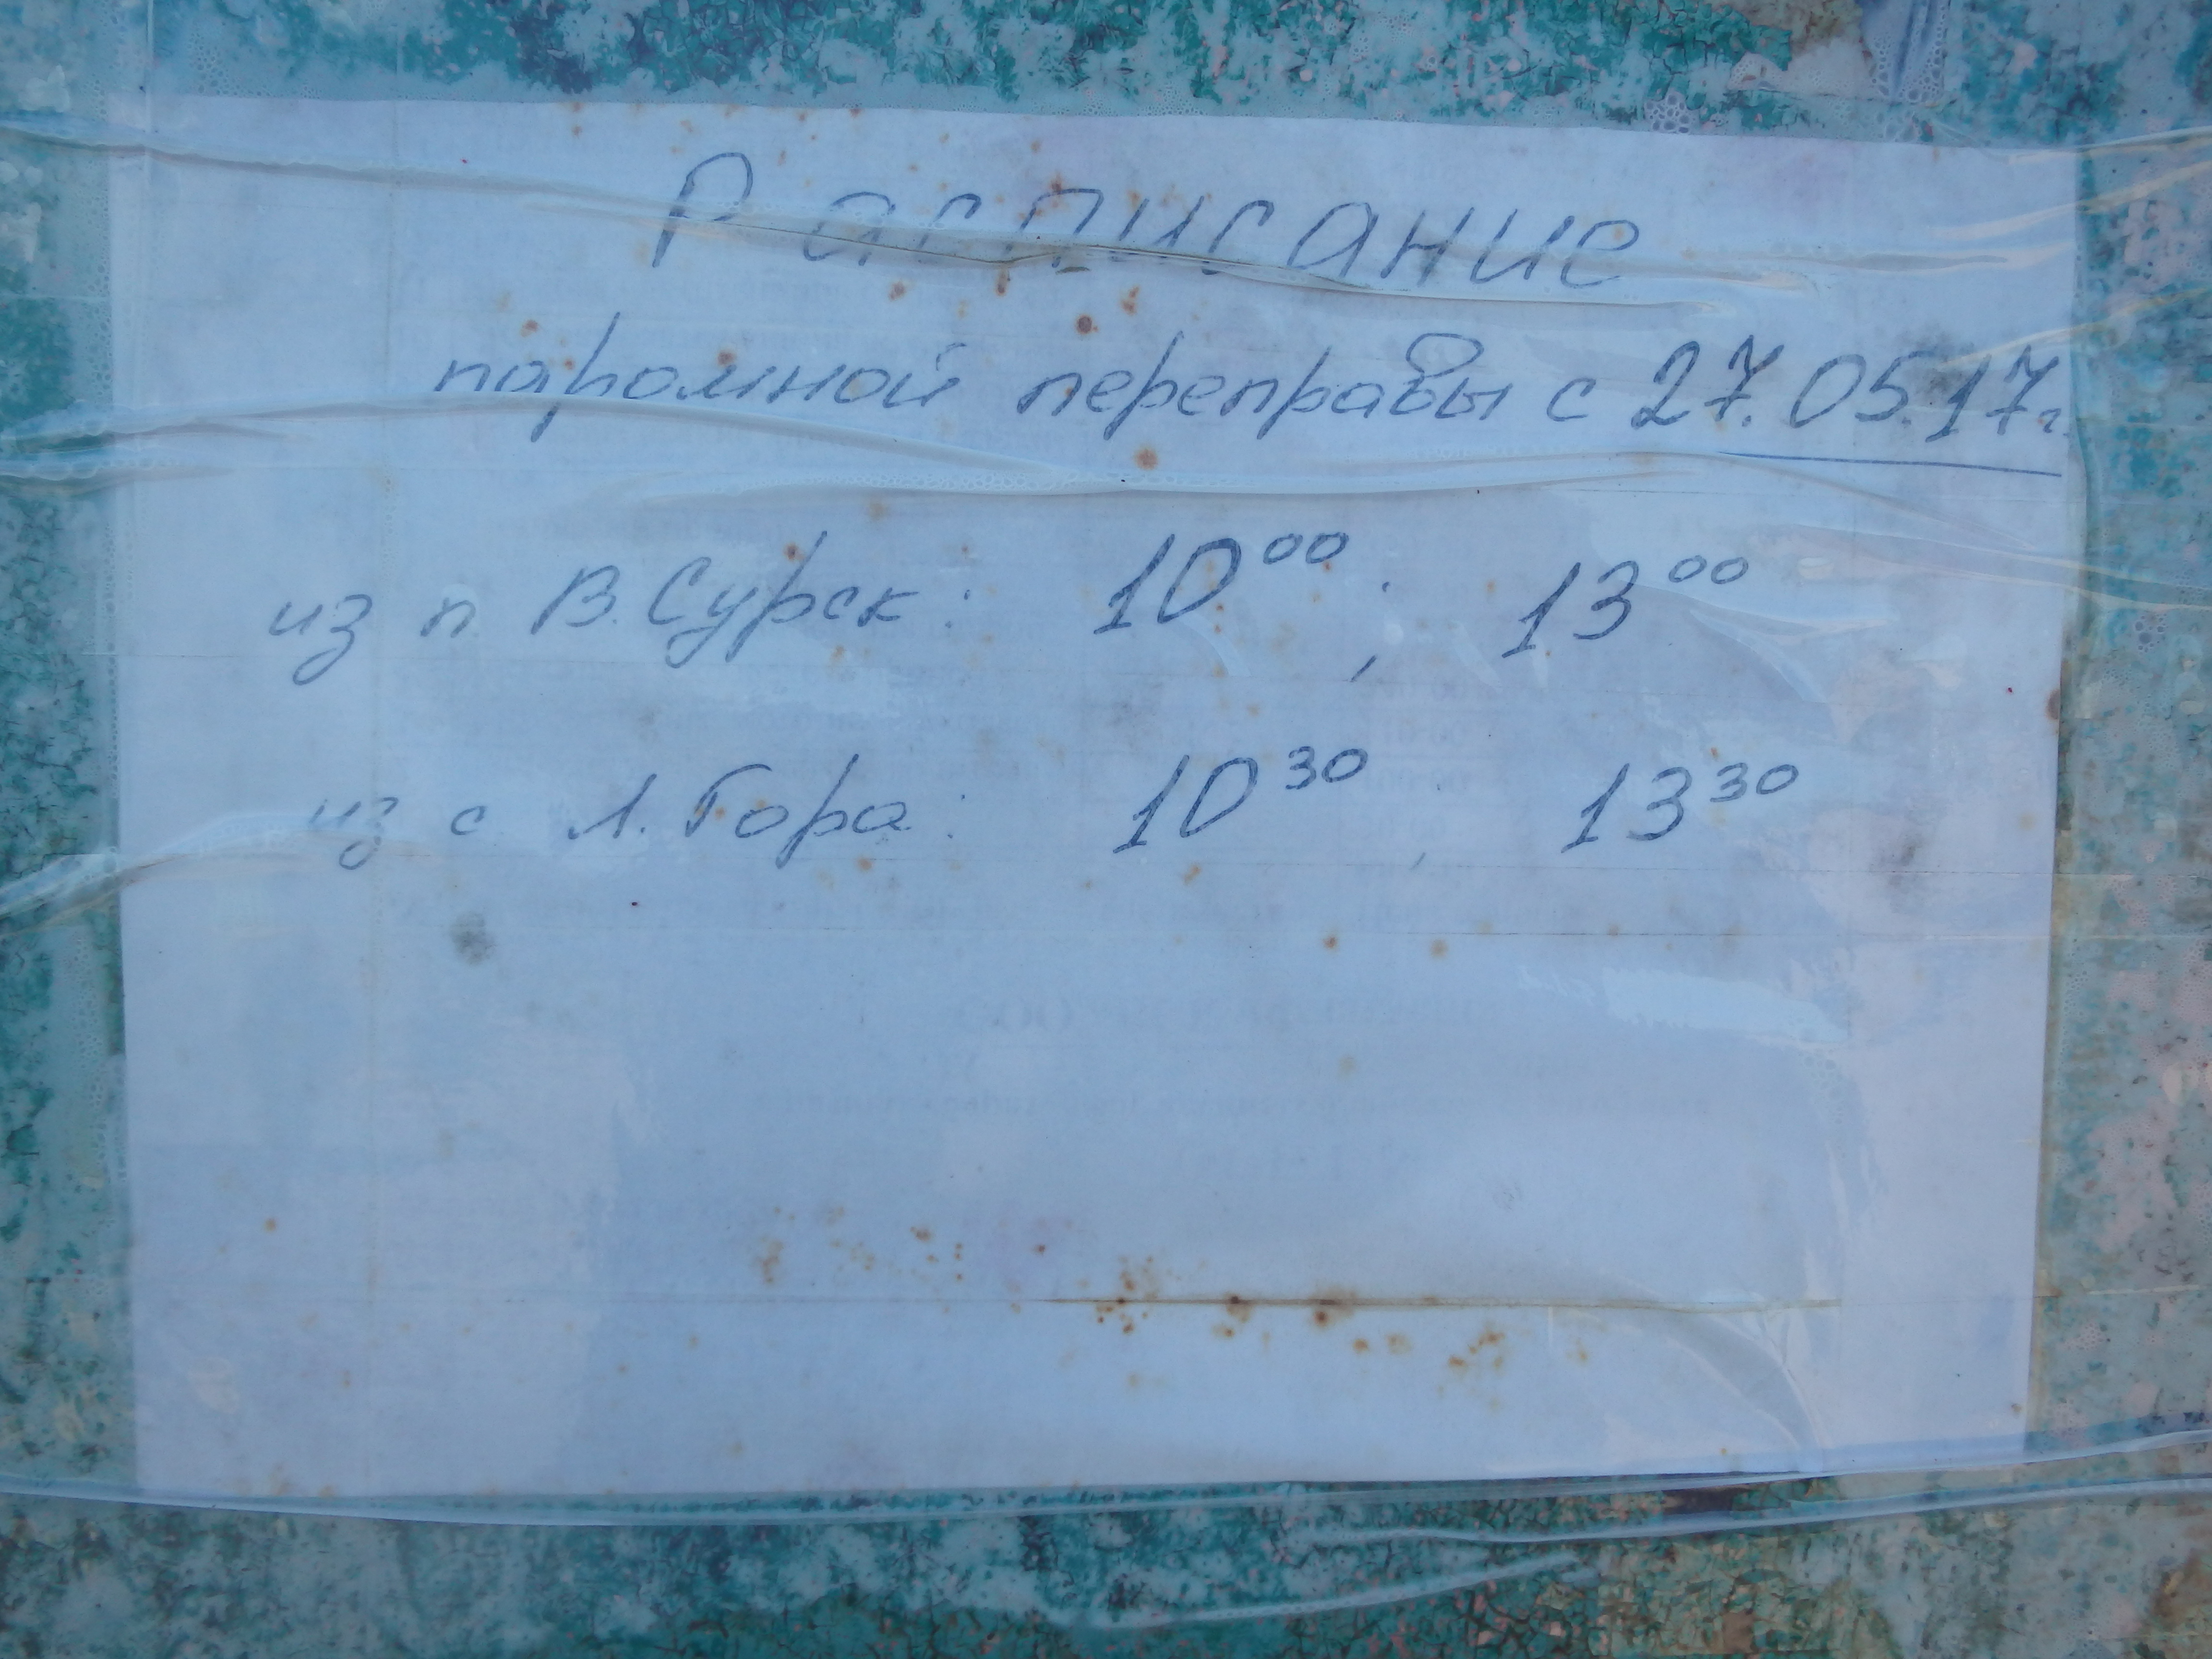 Расписание
паромной переправы с 27.05.17г.
из п. В. Сурск: 10⁰⁰; 13⁰⁰
из с. Л. Гора: 10³⁰, 13³⁰